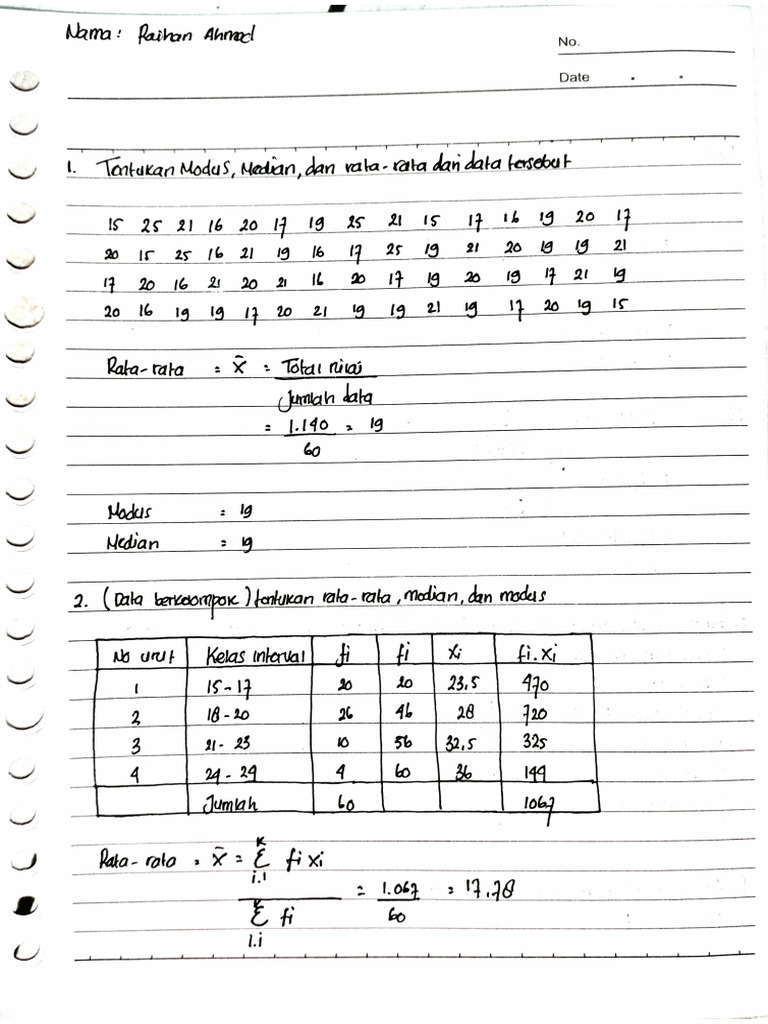 Nama: Raihan Ahmad
No.
Date
1. Tentukan Modus, Median, dan rata-rata dari data tersebut
15 25 21 16 20 17 19 25 21 15 17 16 19 20 17
20 15 25 16 21 19 16 17 25 19 21 20 19 19 21
17 20 16 21 20 21 16 20 17 19 20 19 17 21 19
20 16 19 19 17 20 21 19 19 21 19 17 20 19 15
Rata-rata = x̄ = Total nilai
Jumlah data
= 1.140 = 19
60
Modus = 19
Median = 19
2. (Data berkelompok) tentukan rata-rata, median, dan modus
No urut Kelas interval fi fi xi fi.xi
1 15-17 20 20 23,5 470
2 18-20 26 46 28 720
3 21-23 10 56 32,5 325
4 24-29 4 60 36 144
Jumlah 60 1067
Rata-rata = x̄ = Σ fi xi
k
i.1
= 1.067 = 17.78
60
k
Σ fi
1.i